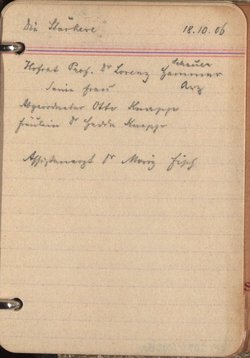 Die Stärkere 18.10.06
Scheuer
Hofrat Prof. Dr Lorenz Hammer
seine Frau Arz
Abgeordneter Otto Knapp
Fräulein Dr Hedda Knapp
Assistenzarzt Dr Moriz Fisch